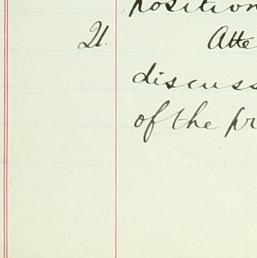 position
21. Atte
discuss
of the pr